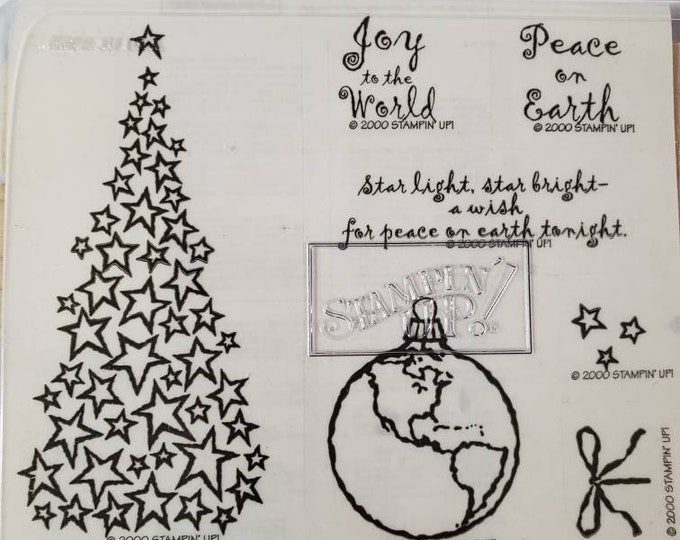 Joy
to the
World
© 2000 STAMPIN' UP!
Peace
on
Earth
© 2000 STAMPIN' UP!
Star light, star bright–
a wish
for peace on earth tonight.
© 2000 STAMPIN' UP!
STAMPIN' UP!
© 2000 STAMPIN' UP!
© 2000 STAMPIN' UP!
© 2000 STAMPIN' UP!